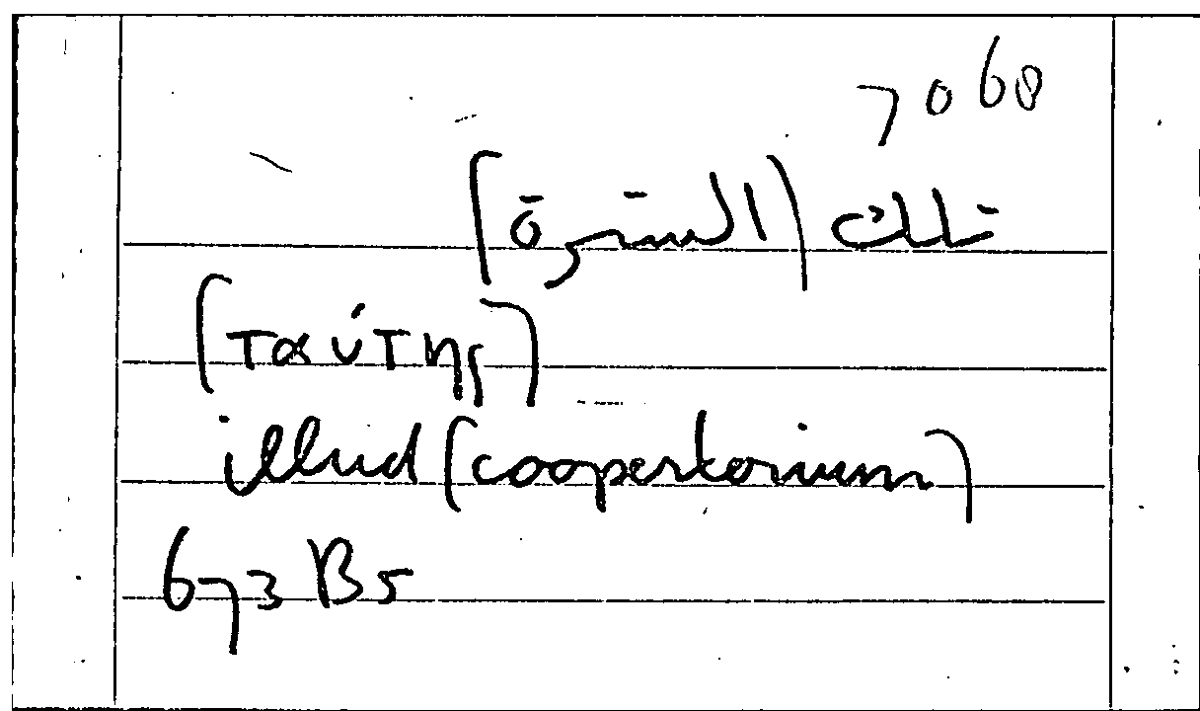 7068
تلك (السترة)
(ταύτης)
illud (coopertorium)
673 B5